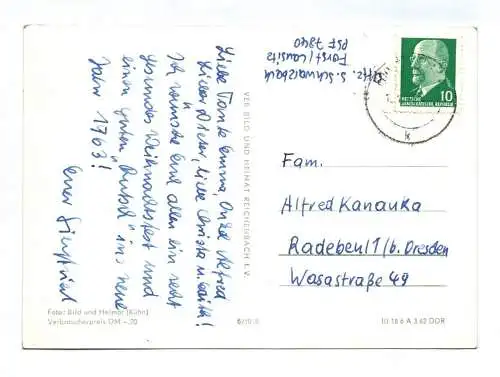 Liebe Tante Emma, Onkel Alfred
lieber Dieter, liebe Christa u. Edith!
Ich wünsche Euch allen ein recht
gesundes Weihnachtsfest und
einen guten „Rutsch" ins neue
Jahr 1963!
Euer Siegfried
S. Schwarzbach
Forst/Lausitz
PSF 7840
DEUTSCHE
DEMOKRATISCHE REPUBLIK
10
k
VEB BILD UND HEIMAT REICHENBACH I. V.
Fam.
Alfred Kanauka
Radebeul 1 / b. Dresden
Wasastraße 49
Foto: Bild und Heimat (Kühn)
Verbraucherpreis DM –,20
III 18 6 A 3 62 DDR